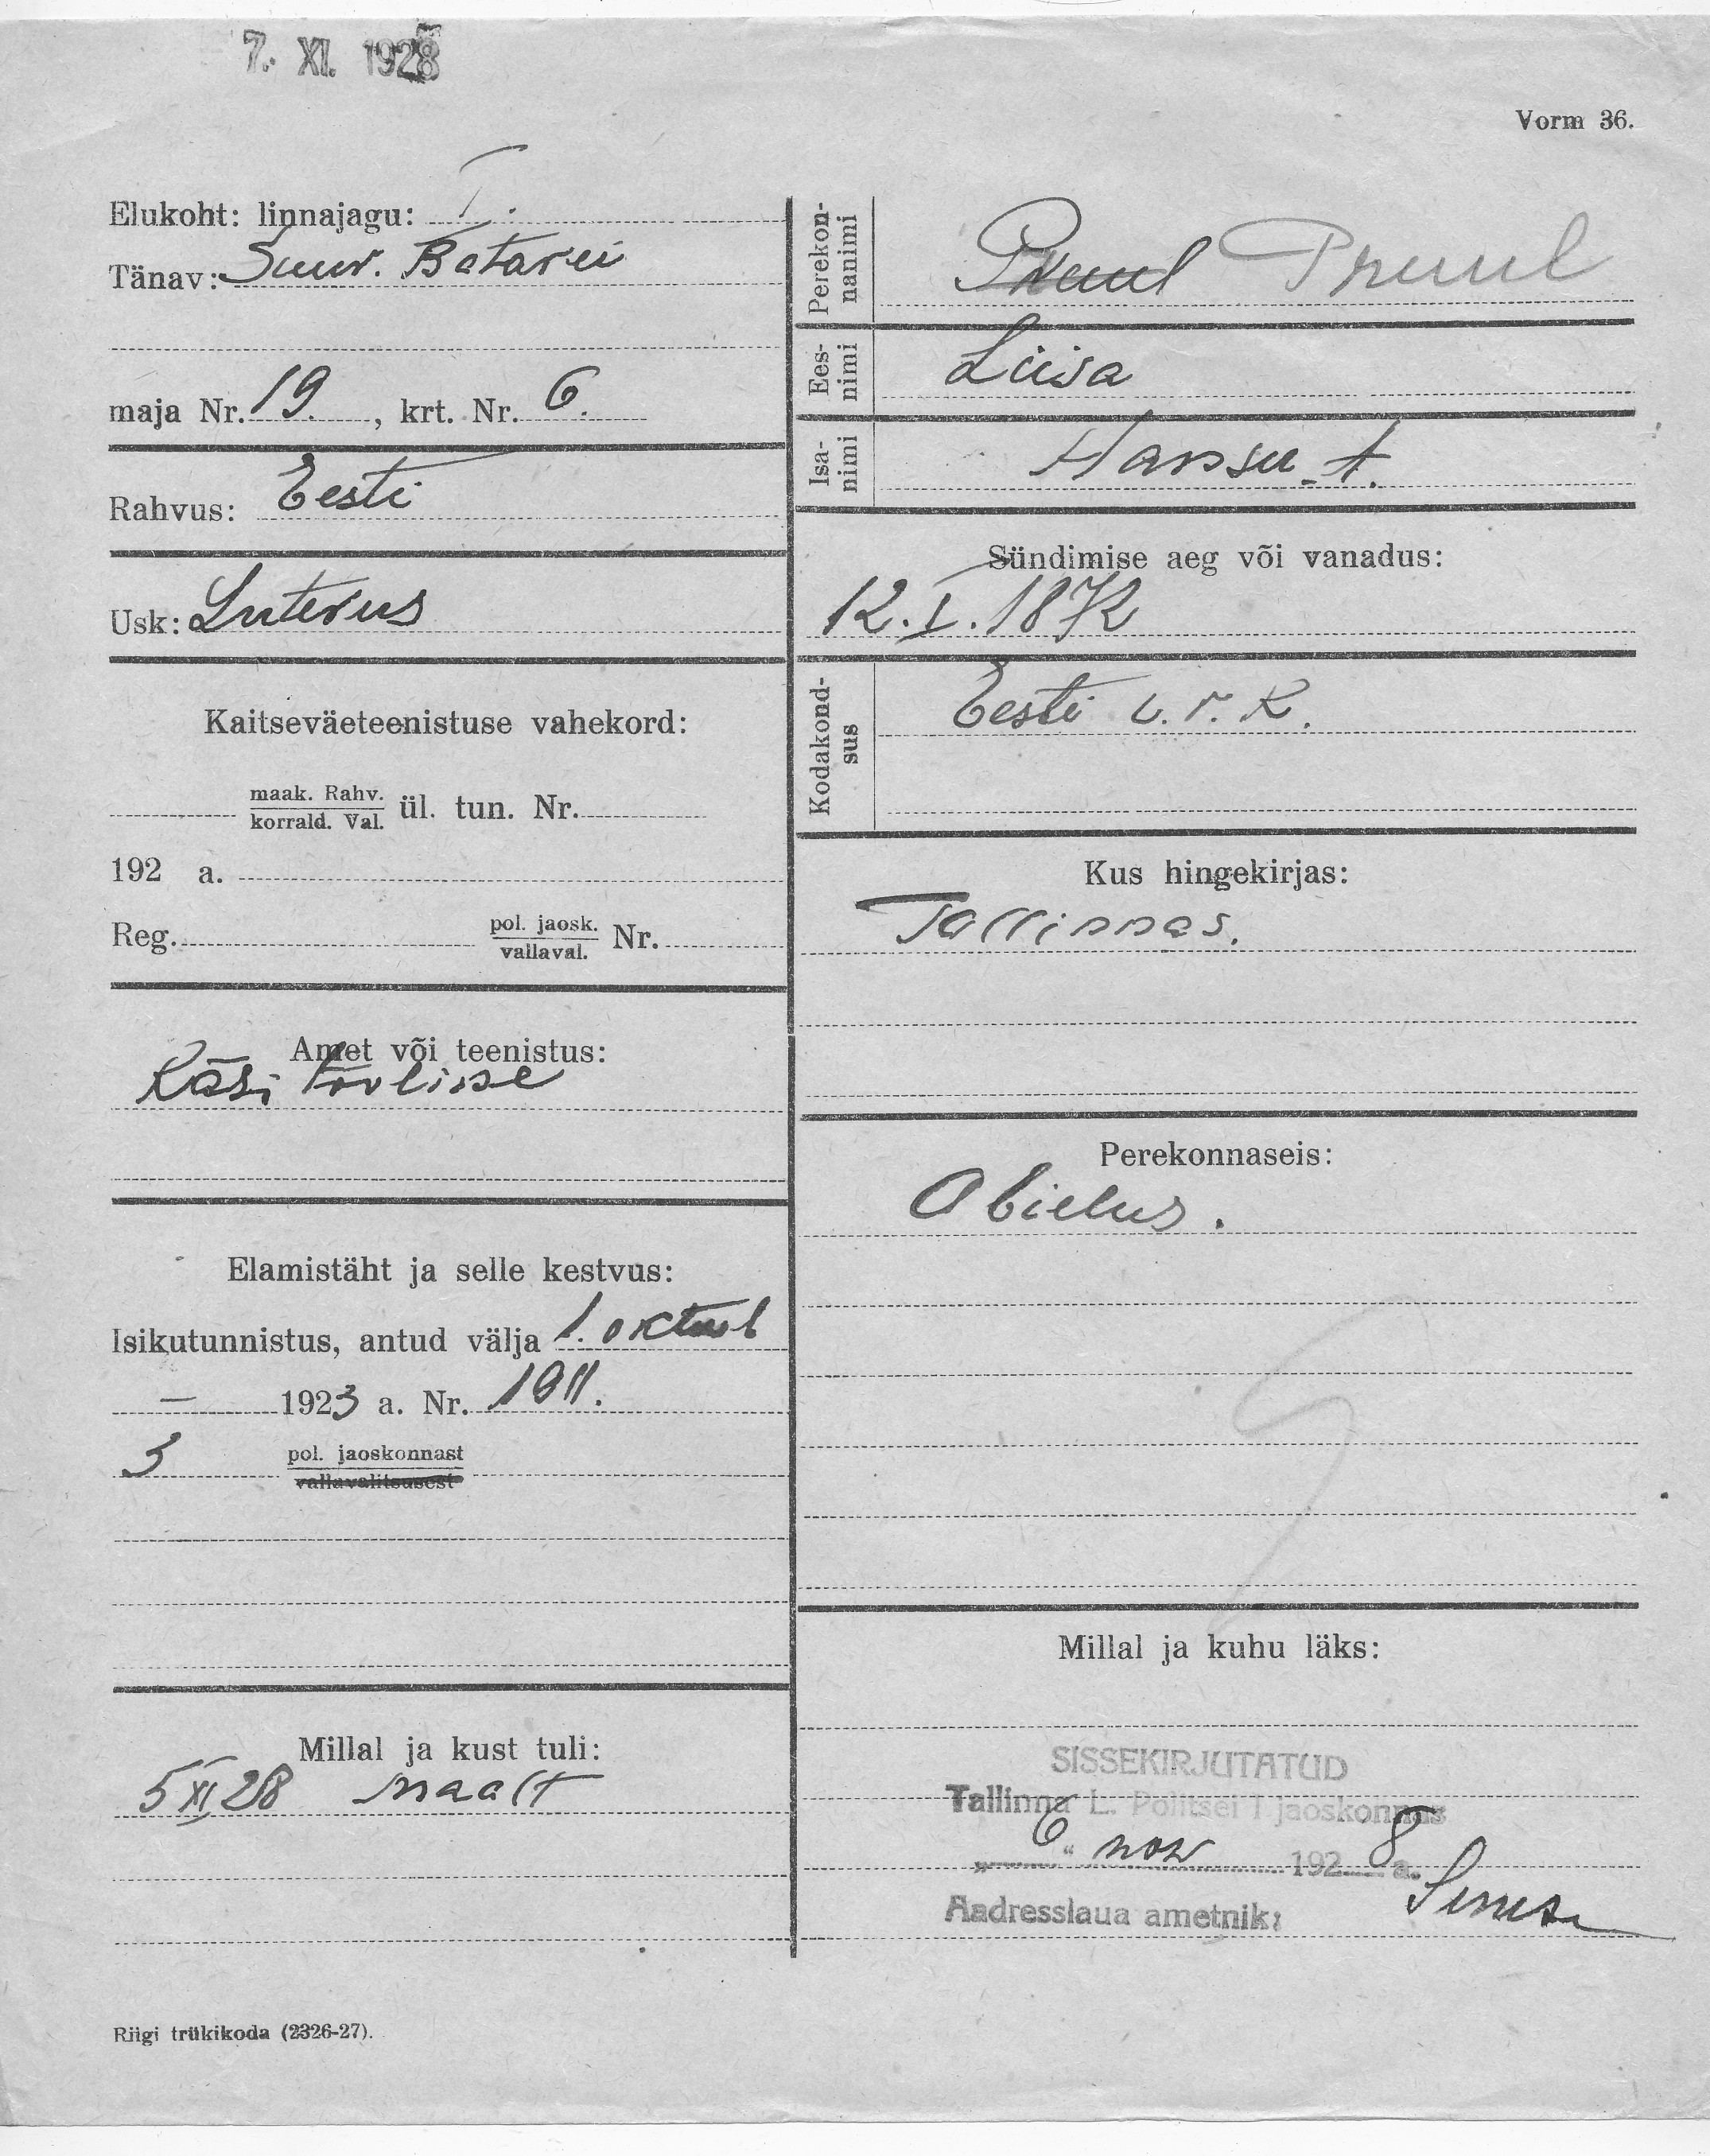 7. XI. 1928
Vorm 36.
Elukoht: linnajagu: I.
Tänav: Suur. Batarei
maja Nr. 19. , krt. Nr. 6.
Rahvus: Eesti
Usk: Luterus
Kaitseväeteenistuse vahekord:
maak. Rahv.
korrald. Val.
ül. tun. Nr.
192 a.
Reg.
pol. jaosk.
vallaval.
Nr.
Amet või teenistus:
Käsi tööline
Elamistäht ja selle kestvus:
Isikutunnistus, antud välja 1. oktoob
— 1923 a. Nr. 1911.
3 pol. jaoskonnast
vallavalitsusest
Millal ja kust tuli:
5 XI 28 maalt
Riigi trükikoda (2326-27).
Perekon-
nanimi
Pruul Pruul
Ees-
nimi
Liisa
Isa-
nimi
Hansu t.
Sündimise aeg või vanadus:
12. I. 1872
Kodakond-
sus
Eesti v. r. K.
Kus hingekirjas:
Tallinnas.
Perekonnaseis:
Abielus.
Millal ja kuhu läks:
SISSEKIRJUTATUD
Tallinna L. Politsei I jaoskonnas
„ 6 “ nov 1928 a.
Aadresslaua ametnik: